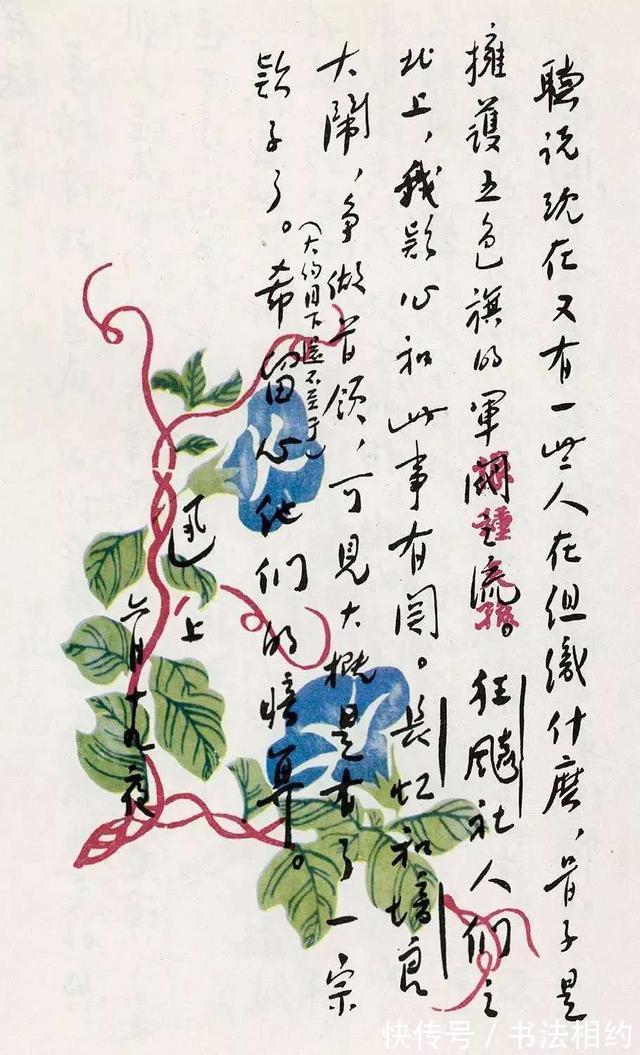 聽说现在又有一些人在组織什麽，骨子是
擁護五色旗的軍閥之流。狂飇社人们之
北上，我疑心和此事有関。長虹和培良
大鬧，争做首领，可見大概是有了一宗
（大约目下還不至于）
欵子了。希留心他们的暗算。
迅 上
六月十九夜
快传号 / 书法相约